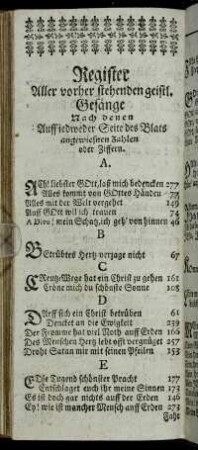 Register
Aller vorher stehenden geistl.
Gesänge
Nach denen
Auff iedweder Seite des Blats
angewiesnen Zahlen
oder Ziffern.
A.
ACh! liebster GOtt, laß mich bedencken 277
Alles kommt von GOttes Händen 79
Alles mit der Welt vergehet 149
Auff GOtt will ich trauen 74
A Dieu! mein Schatz, ich geh' von hinnen 46
B
BEtrübtes Hertz verzage nicht 67
C
CReutz-Wege hat ein Christ zu gehen 161
Cröne mich du schönste Sonne 105
D
DArff sich ein Christ betrüben 61
Dencket an die Ewigkeit 239
Der Fromme hat viel Noth auff Erden 166
Des Menschen Hertz lebt offt vergnüget 257
Droht Satan mir mit seinen Pfeilen 153
E
EDle Tugend schönster Pracht 177
Entschlaget euch ihr meine Sinnen 173
Es ist doch gar nichts auff der Erden 146
Ey! wie ist mancher Mensch auff Erden 273